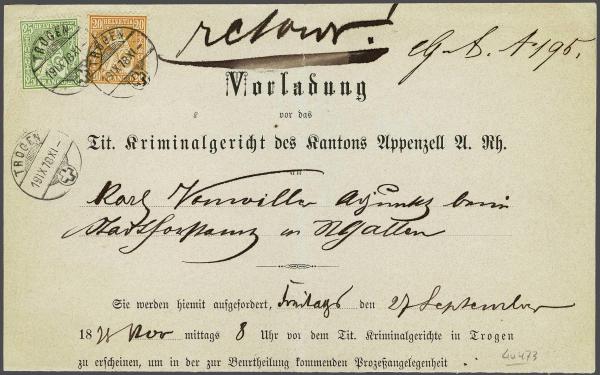 retour.
25 HELVETIA 20 HELVETIA 20
TROGEN TROGEN
19 IX 78 XI - 
Vorladung
vor das
Tit. Kriminalgericht des Kantons Appenzell A. Rh.
an
TROGEN
19 IX 78 XI -
Karl Vonwiller Adjunkt beim
Stadtforstamt in StGallen
Sie werden hiemit aufgefordert, Freitags den 27 September
1878 Vor mittags 8 Uhr vor dem Tit. Kriminalgerichte in Trogen
zu erscheinen, um in der zur Beurtheilung kommenden Prozeßangelegenheit